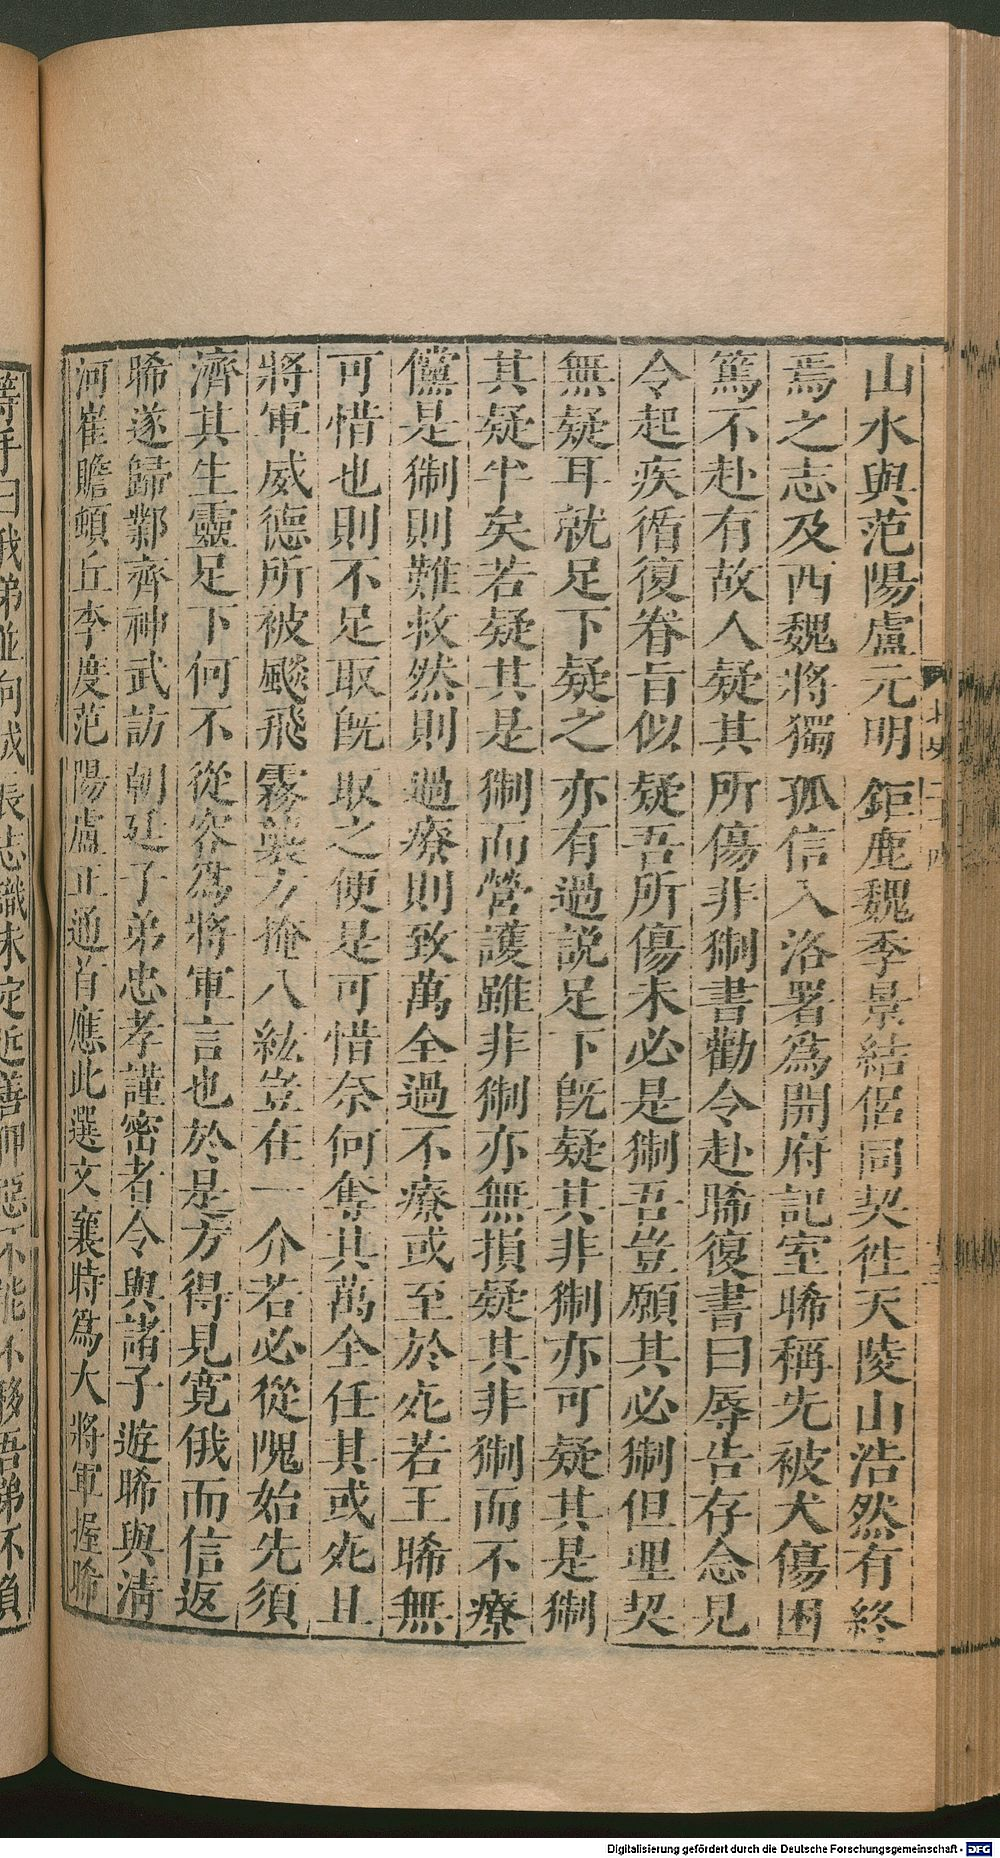 山水與范陽盧元明鉅鹿魏季景結侶同契徃天陵山浩然有終
焉之志及西魏將獨孤信入洛署爲開府記室晞稱先被犬傷困
篤不赴有故人疑其所傷非猘書勸令赴晞復書曰辱告存念見
令起疾循復眷旨似疑吾所傷未必是猘吾豈願其必猘但理契
無疑耳就足下疑之亦有過説足下旣疑其非猘亦可疑其是猘
其疑半矣若疑其是猘而營護雖非猘亦無損疑其非猘而不療
儻是猘則難救然則過療則致萬全過不療或至於死若王晞無
可惜也則不足取旣取之便是可惜奈何奪其萬全任其或死且
將軍威德所被飈飛霧襲方掩八紘豈在一介若必從隗始先須
濟其生靈足下何不從容爲將軍言也於是方得見寛俄而信返
晞遂歸鄴齊神武訪朝廷子弟忠孝謹密者令與諸子遊晞與清
河崔瞻頓丘李度范陽盧正通首應此選文襄時爲大將軍握晞
等手曰我弟並向成長志識未定近善狎惡不能不移吾弟不負
Digitalisierung gefördert durch die Deutsche Forschungsgemeinschaft - DFG